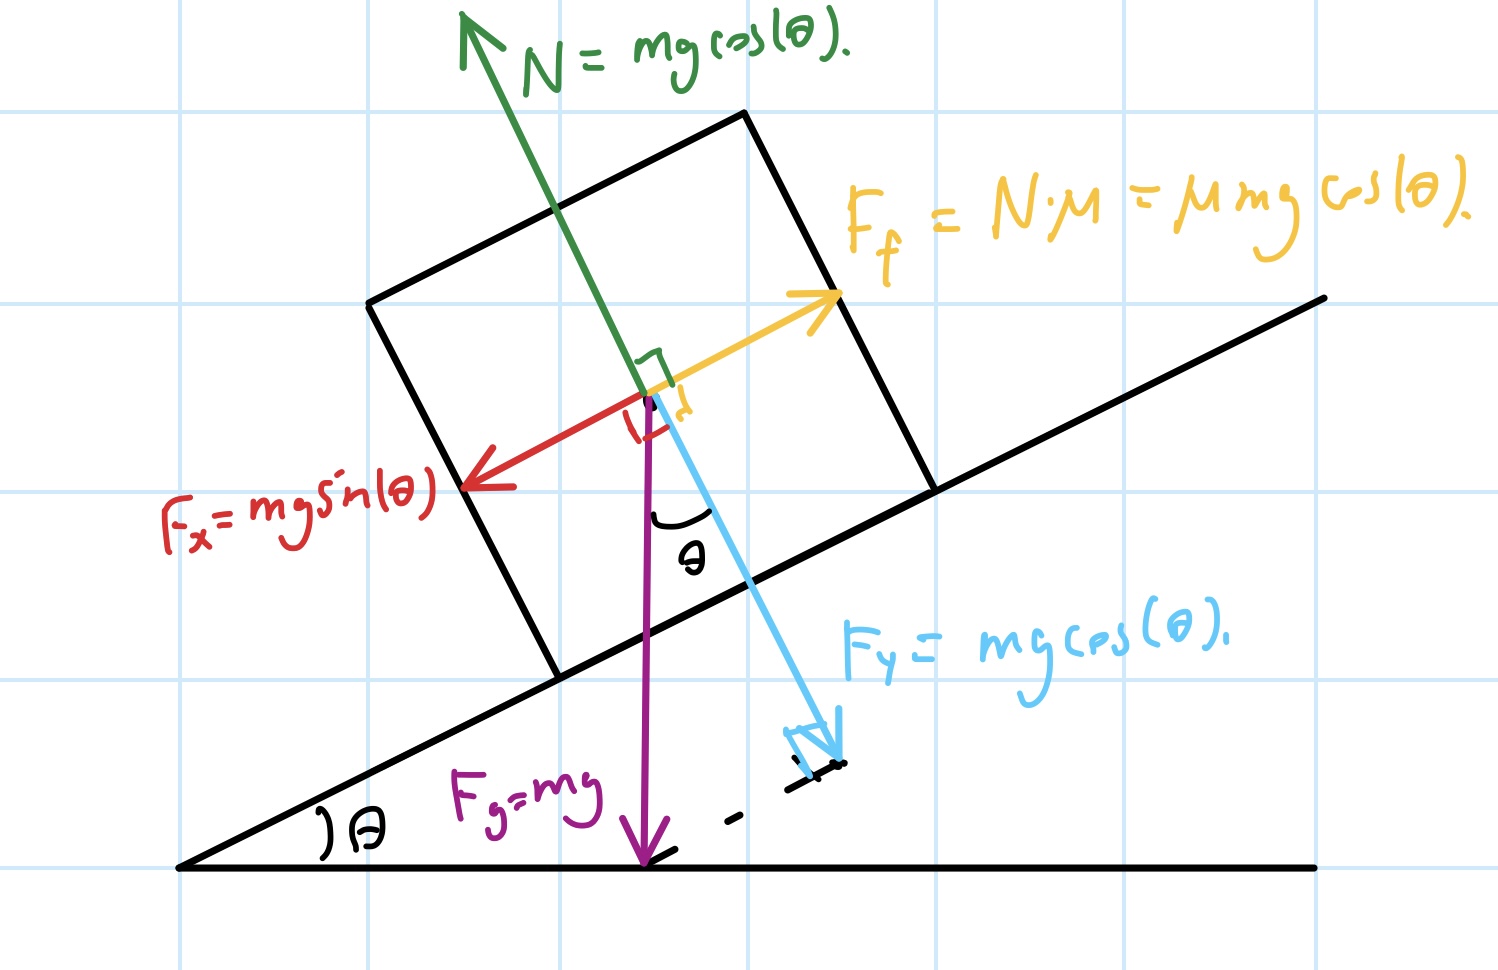 N = mg cos(θ).
F_f = N·μ = μ mg cos(θ).
F_x = mg sin(θ)
θ
F_y = mg cos(θ).
F_g = mg
θ